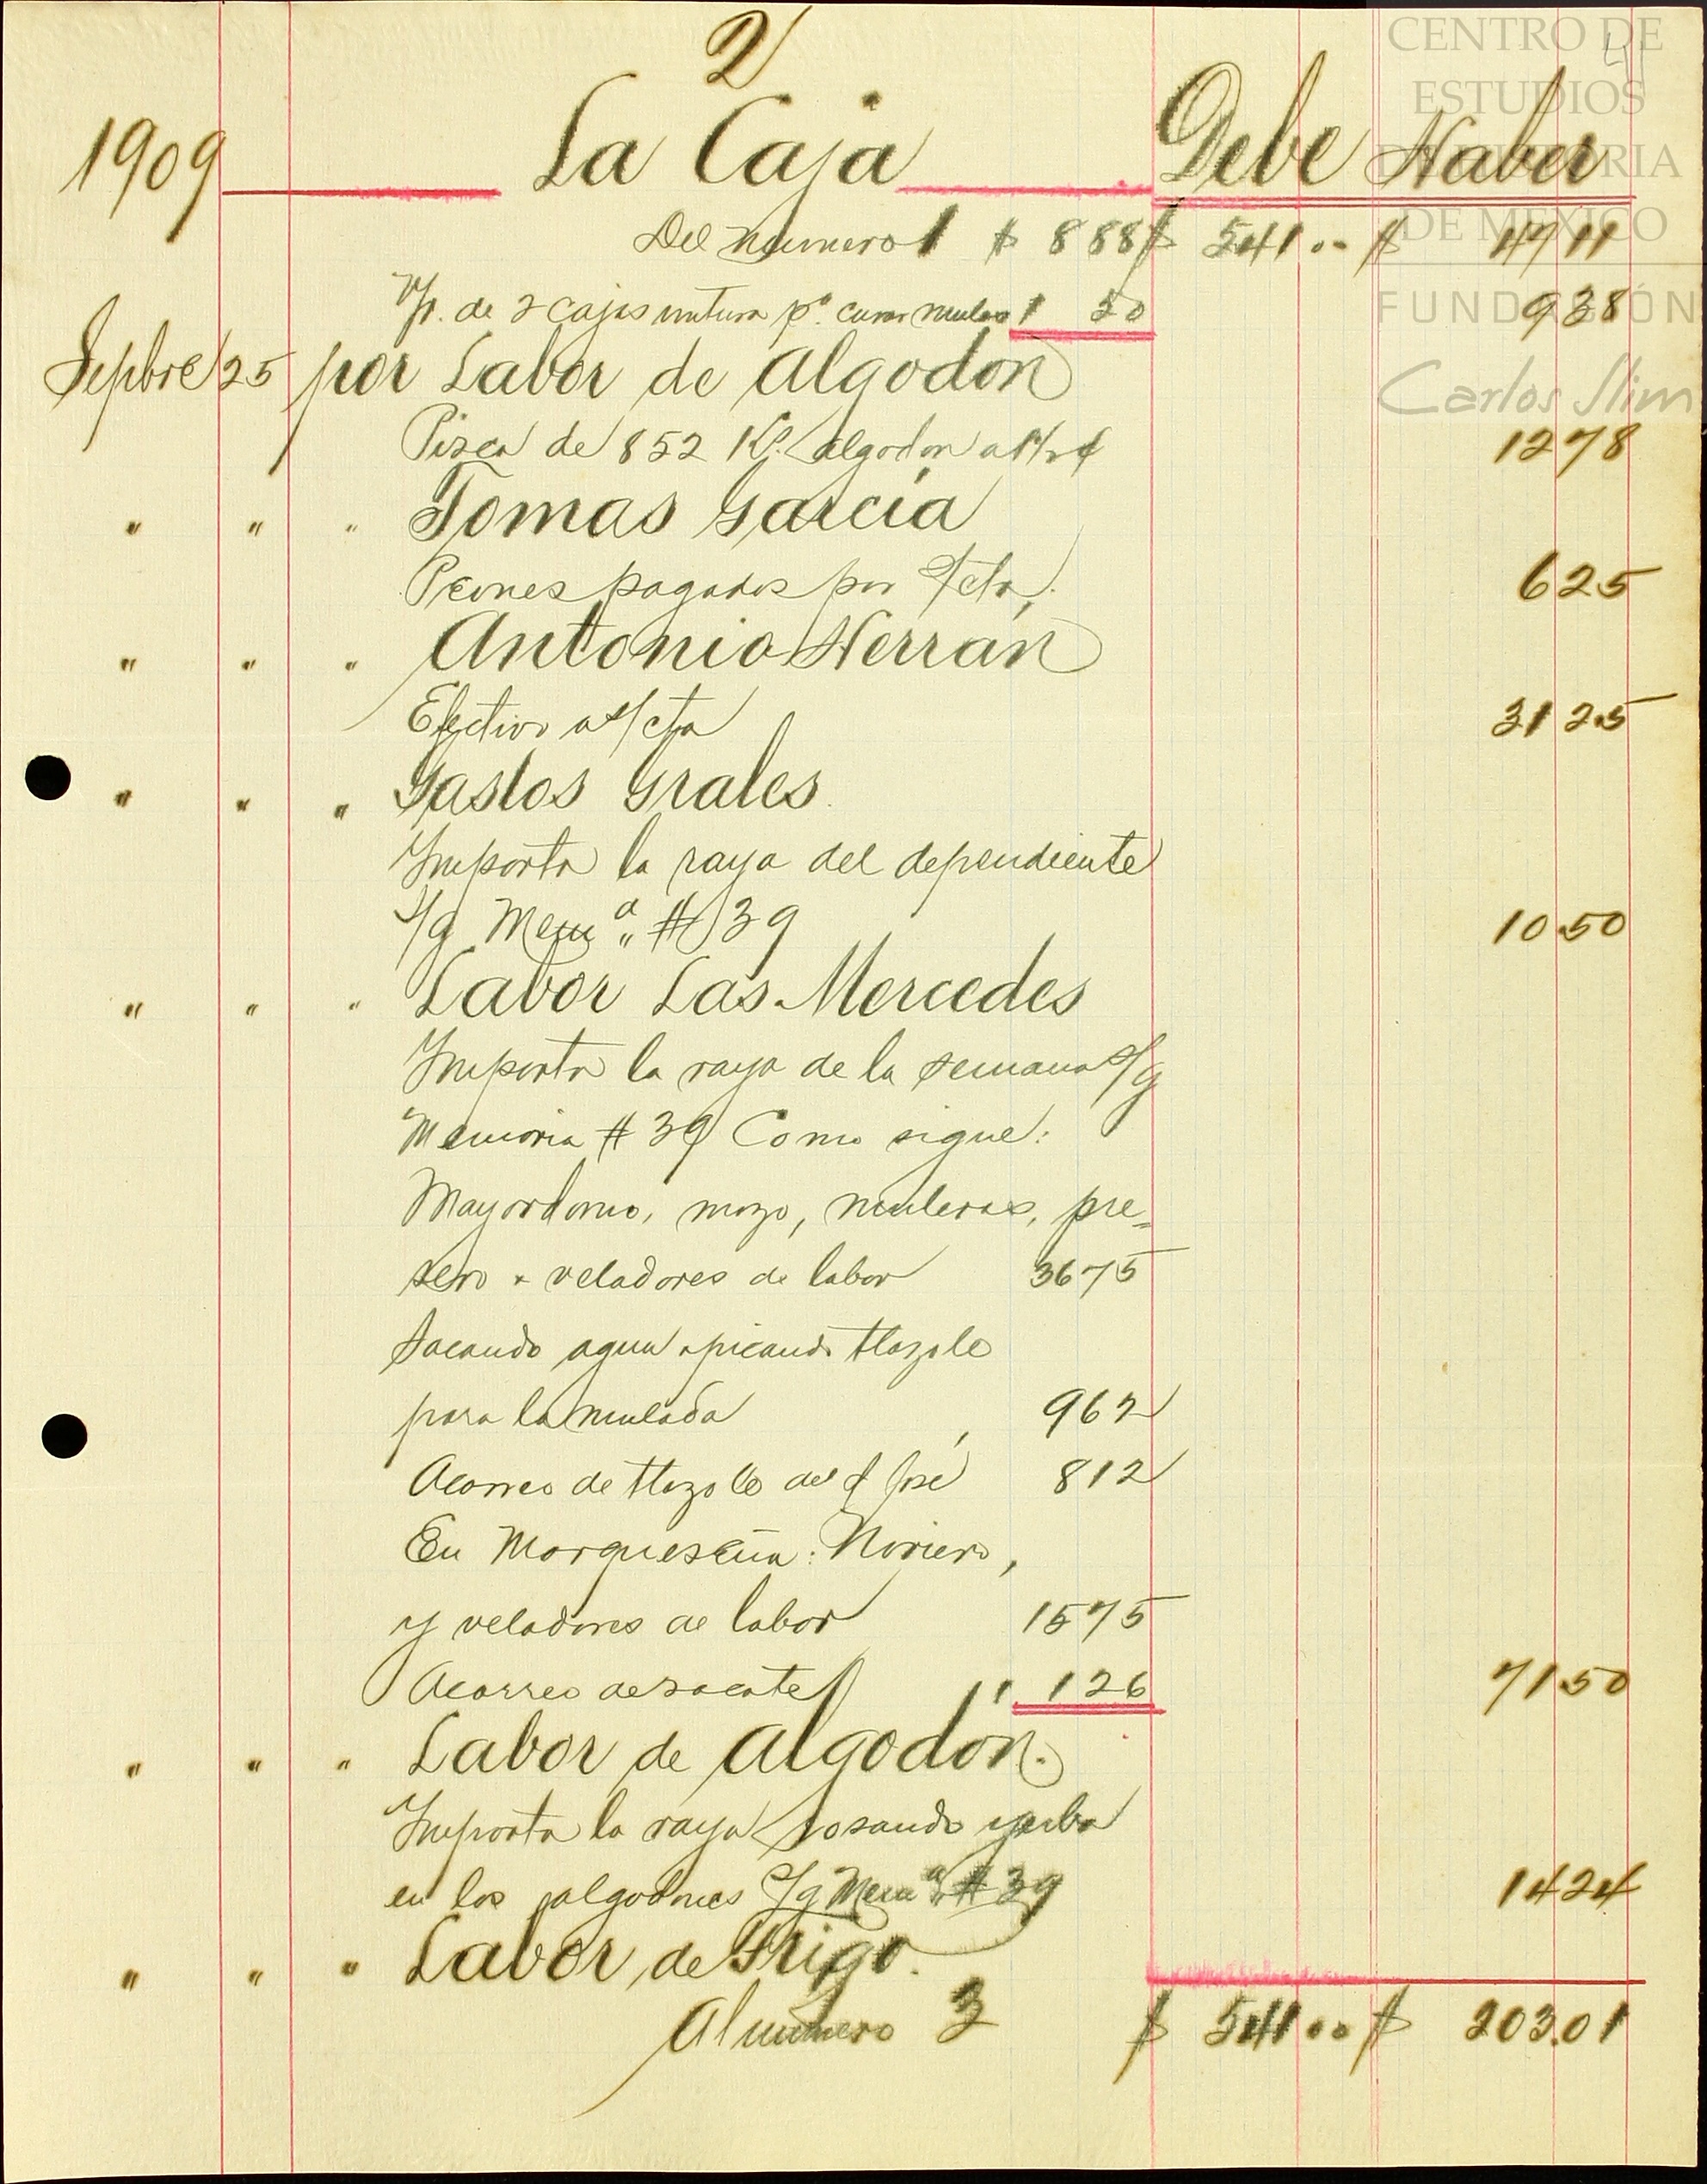 CENTRO DE
ESTUDIOS
DE HISTORIA
DE MÉXICO
FUNDACIÓN
Carlos Slim
2
1909 La Caja Debe Haber
Del numero 1 $ 888 $ 541.. $ 4711
Vr. de 2 cajas untura pa. curar mulas " 50 938
Sepbre 25 por Labor de Algodon
Pizca de 852 K. algodon a 1½ ¢ 1278
" " " Tomas Garcia
Peones pagados por s/cta. 625
" " " Antonio Herrán
Efectivo a s/cta 3125
" " " Gastos Grales.
Importa la raya del dependiente
s/g Mema. # 39 1050
" " " Labor Las Mercedes
Importa la raya de la semana s/g
Memoria # 39 Como sigue:
Mayordomo, mozo, muleros, pre-
sero y veladores de labor 3675
Sacando agua y picando tlazole
para la mulada 962
Acarreo de tlazole del S. José 812
En Marqueseña:
y veladores de labor 1575
Acarreo de zacate " 126 7150
" " " Labor de Algodón.
Importa la raya rosando yerba
en los algodones s/g Mema. # 39 1424
" " " Labor de Trigo.
Al numero 3 $ 541.. $ 203.01